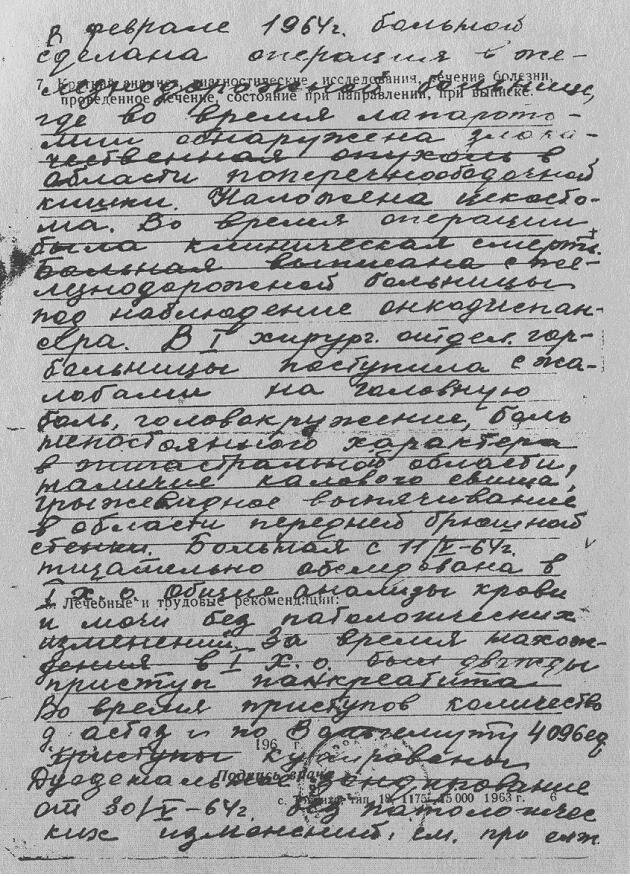 В феврале 1964г. больной
сделана операция в же-
7. Краткий анамнез, диагностические исследования, течение болезни,
лезнодорожной больнице,
проведенное лечение, состояние при направлении, при выписке:
где во время лапарото-
мии обнаружена злока-
чественная опухоль в
области поперечноободочной
кишки. Наложена цекосто-
ма. Во время операции
была клиническая смерть.
Больная выписана с же-
лезнодорожной больницы
под наблюдение онкодиспан-
сера. В I хирург. отдел. гор-
больницы поступила с жа-
лобами на головную
боль, головокружение, боль
непостоянного характера
в эпигастральной области,
наличие калового свища,
грыжевидное выпячивание
в области передней брюшной
стенки. Больная с 11/V-64г.
тщательно обследована в
I х. о. Общие анализы крови
Лечебные и трудовые рекомендации:
и мочи без патологических
изменений. За время нахож-
дения в I х. о. был дважды
приступ панкреатита
Во время приступов количество
диастаз и по Вольгемуту 4096ед
196 г.
Приступы купированы
Подпись врача
Дуоденальное зондирование
тип. 1175 15000 1963 г. 6
от 30/V-64г. без патологичес
ких изменений. см. про